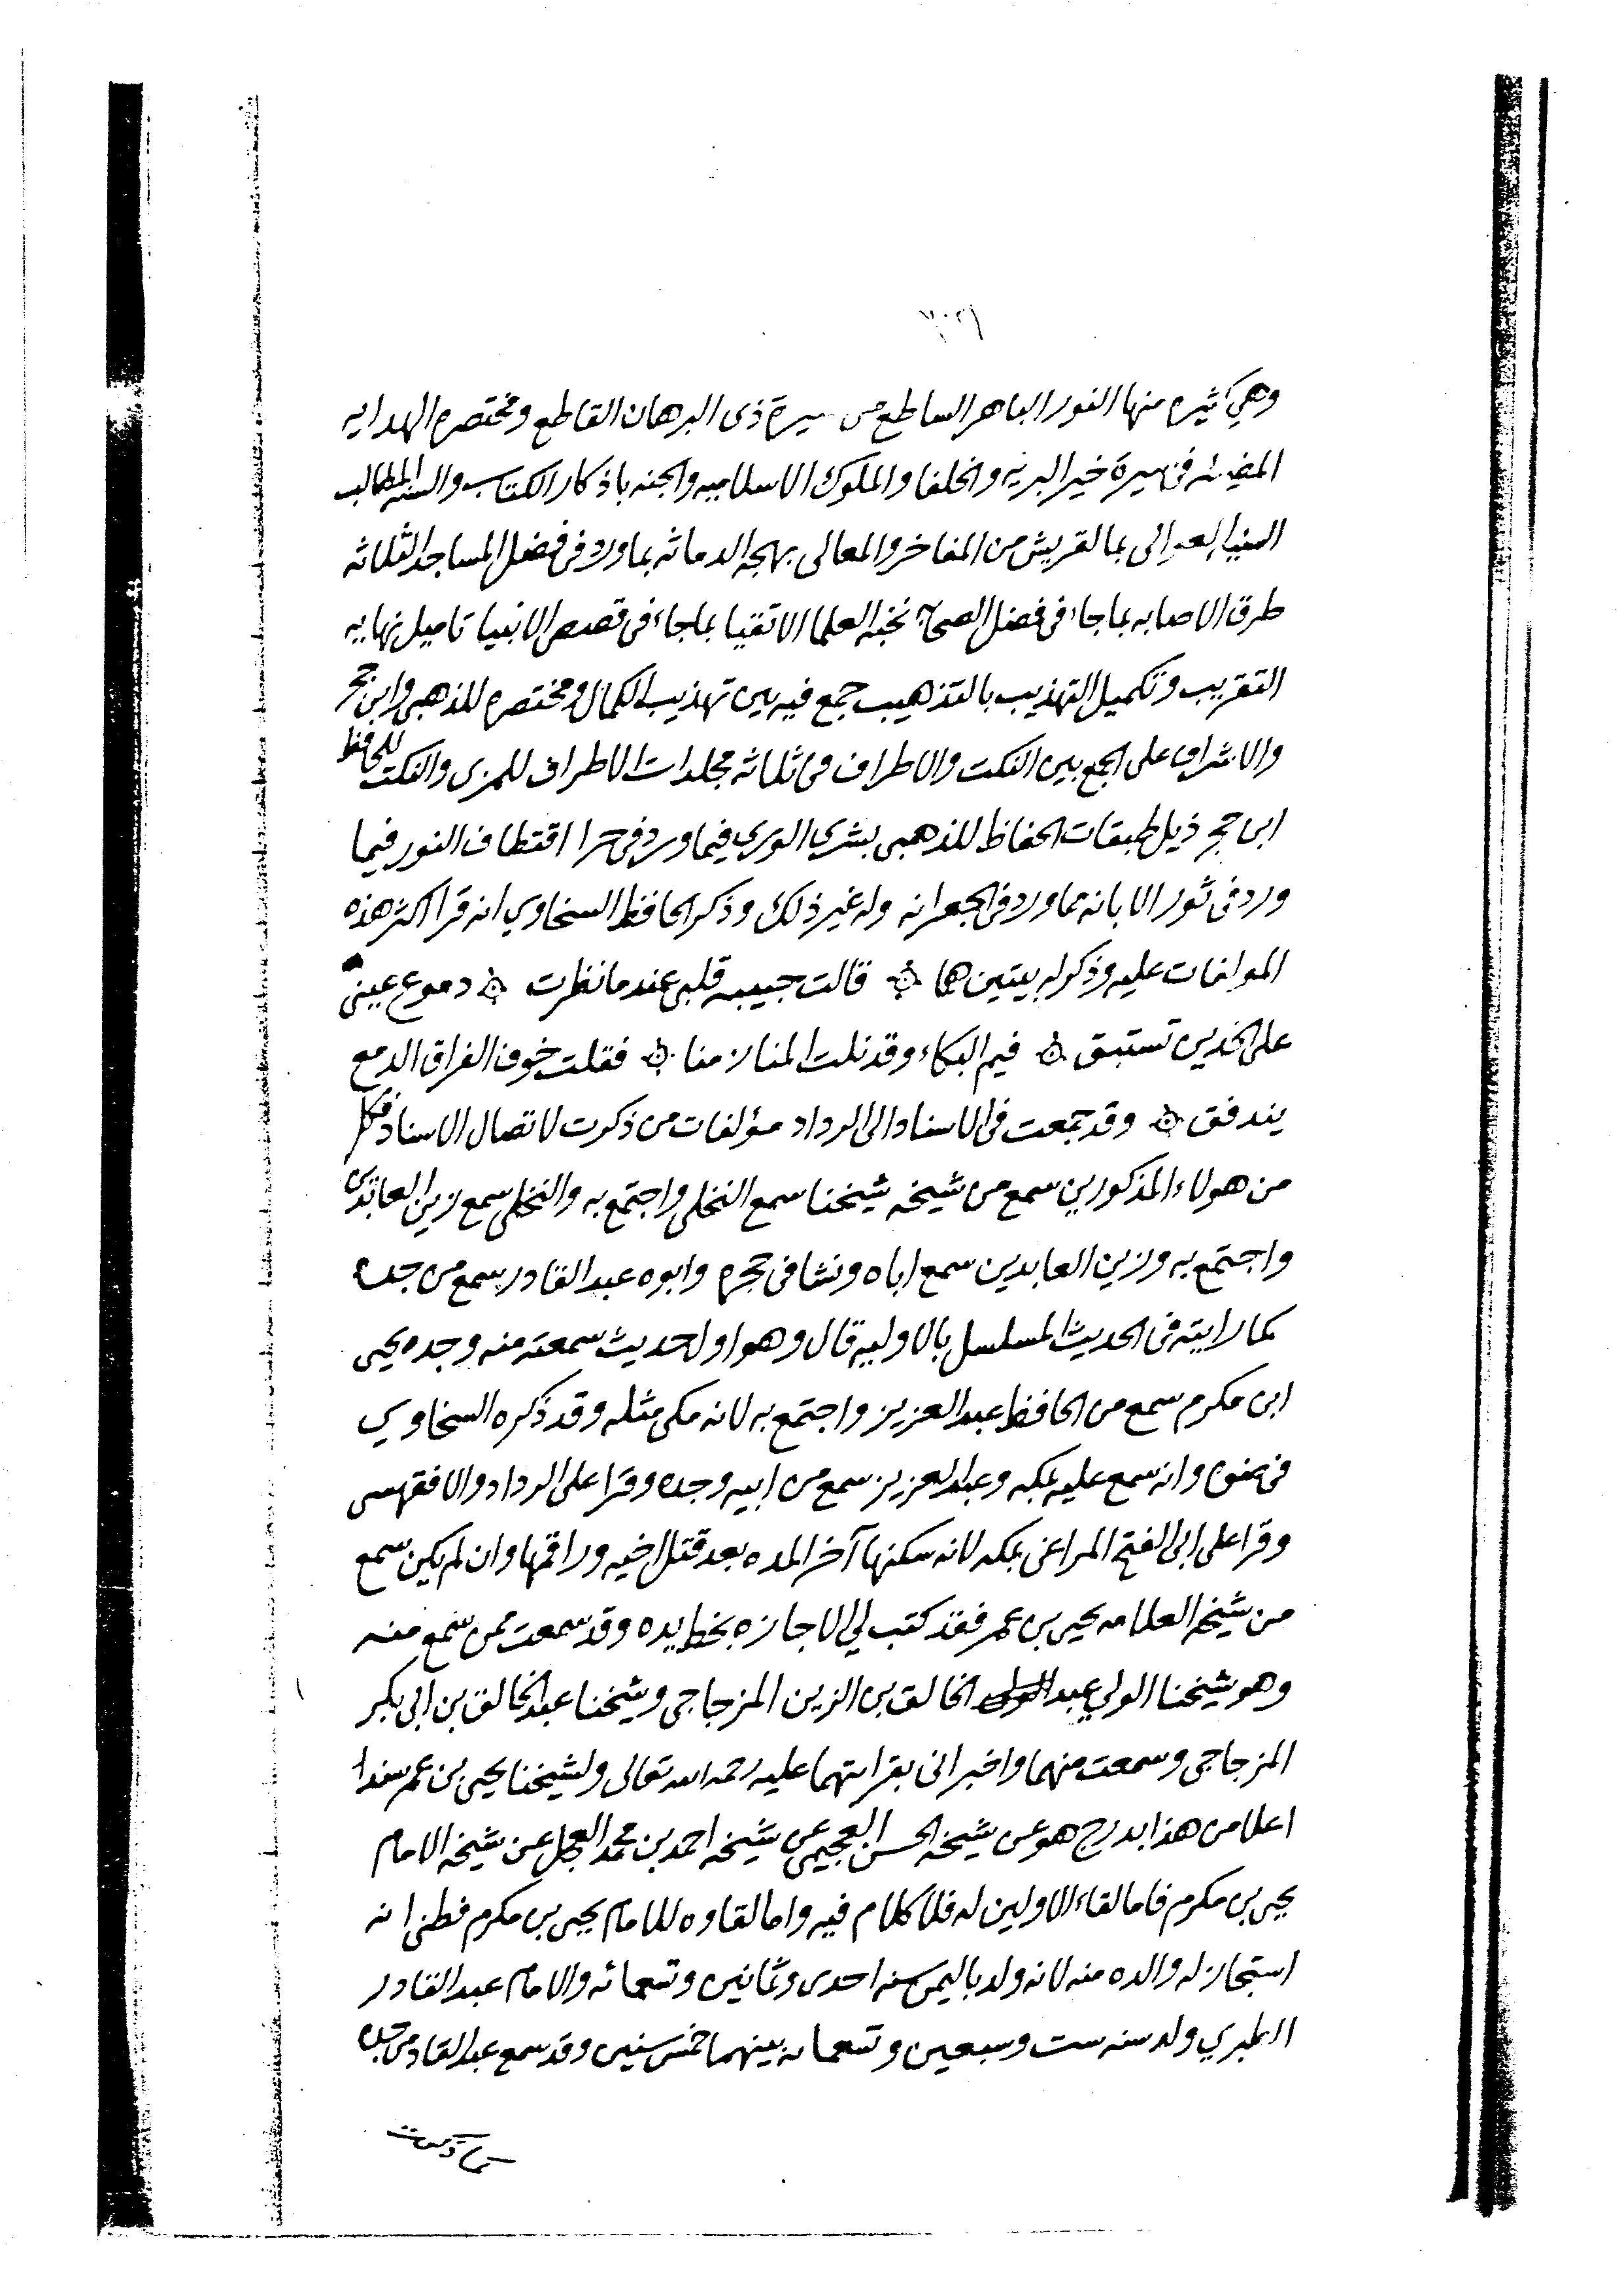 وهي كثيره منها النور الباهر الساطع من سيرة ذى البرهان القاطع ومختصره الهدايه
المضيئه فى سيرة خير البريه والخلفا والملوك الاسلاميه والجنه باذكار الكتاب والسنه المطالب
السنيه العوالى بما لقريش من المفاخر والمعالى بهجه الدماثه بما ورد فى فضل المساجد الثلاثه
طرق الاصابه بما جاء فى فضل الصحابه نخبه العلما الاتقيا بما جاء فى قصص الانبيا تاميل نهايه
التقريب وتكميل التهذيب بالتذهيب جمع فيه بين تهذيب الكمال ومختصره للذهبى وابن حجر
والاشراف على الجمع بين النكت والاطراف فى ثلاثه مجلدات الاطراف للمزى والنكت للحافظ
ابن حجر ذيل طبقات الحفاظ للذهبى بشري الوري فيما ورد فى حرا اقتطاف النور فيما
ورد فى ثور الابانه مما ورد فى الجعرانه وله غير ذلك وذكر الحافظ السخاوي انه قرا اكثر هذه
المولفات عليه وذكر له بيتين هما قالت حبيبه قلبى عندما نظرت دموع عينى
على الخدين تستبق فيم البكاء وقد نلت المنا زمنا فقلت خوف الفراق الدمع
يندفق وقد جمعت فى الاسناد الى الرداد مؤلفات من ذكرت لاتصال الاسناد فكل
من هولاء المذكورين سمع من شيخه شيخنا سمع النخلى واجتمع به والنخلى سمع زين العابدين
واجتمع به وزين العابدين سمع اباه ونشا فى حجره وابوه عبد القادر سمع من جده
كما رايته فى الحديث المسلسل بالاوليه قال وهو اول حديث سمعته منه وجده يحيى
ابن مكرم سمع من الحافظ عبد العزيز واجتمع به لانه مكى مثله وقد ذكره السخاوي
فى ضوه وانه سمع عليه بمكه وعبد العزيز سمع من ابيه وجده وقرا على الرداد والافقهسى
وقرا على ابى الفتح المراغى بمكه لانه سكنها آخر المده بعد قتل اخيه وراقمها وان لم يكن سمع
من شيخه العلامه يحيى بن عمر فقد كتب لي الاجازه بخط يده وقد سمعت ممن سمع منه
وهو شيخنا الولي عبد الخالق بن الزين المزجاجى وشيخنا عبد الخالق بن ابى بكر
المزجاجى وسمعت منهما واخبرانى بقراتهما عليه رحمه الله تعالى ولشيخنا يحيى بن عمر سندا
اعلا من هذا بدرج هو عن شيخه الحسن العجيمي عن شيخه احمد بن محمد العجل عن شيخه الامام
يحيى بن مكرم فاما لقاء الاولين له فلا كلام فيه واما لقاوه للامام يحيى بن مكرم فظنى انه
استجاز له والده منه لانه ولد باليمن سنه احدى وثمانين وتسعمائه والامام عبد القادر
الطبري ولد سنه ست وسبعين وتسعمايه بينهما خمس سنين وقد سمع عبد القادر من جده
كما ذكرت